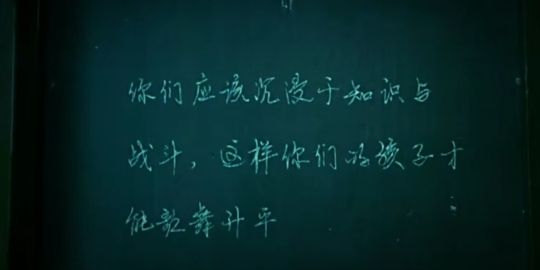 你们应该沉浸于知识与
战斗，这样你们的孩子才
能歌舞升平